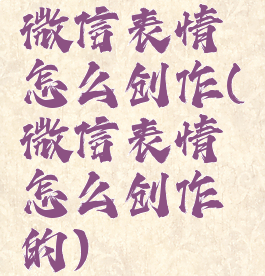 微信表情
怎么创作(
微信表情
怎么创作
的)